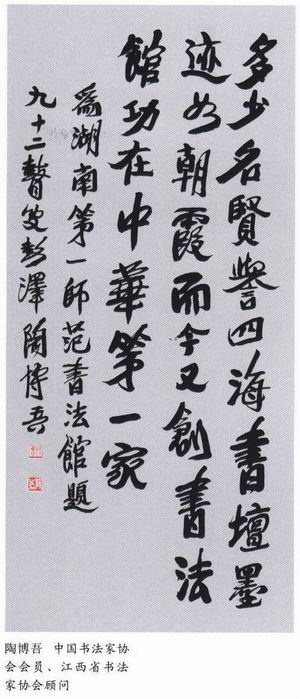 多少名賢譽四海書壇墨
迹如朝霞而今又創書法
館功在中華第一家
為湖南第一師范書法館題
九十二瞽叟彭澤陶博吾
陶博吾 中国书法家协
会会员、江西省书法
家协会顾问